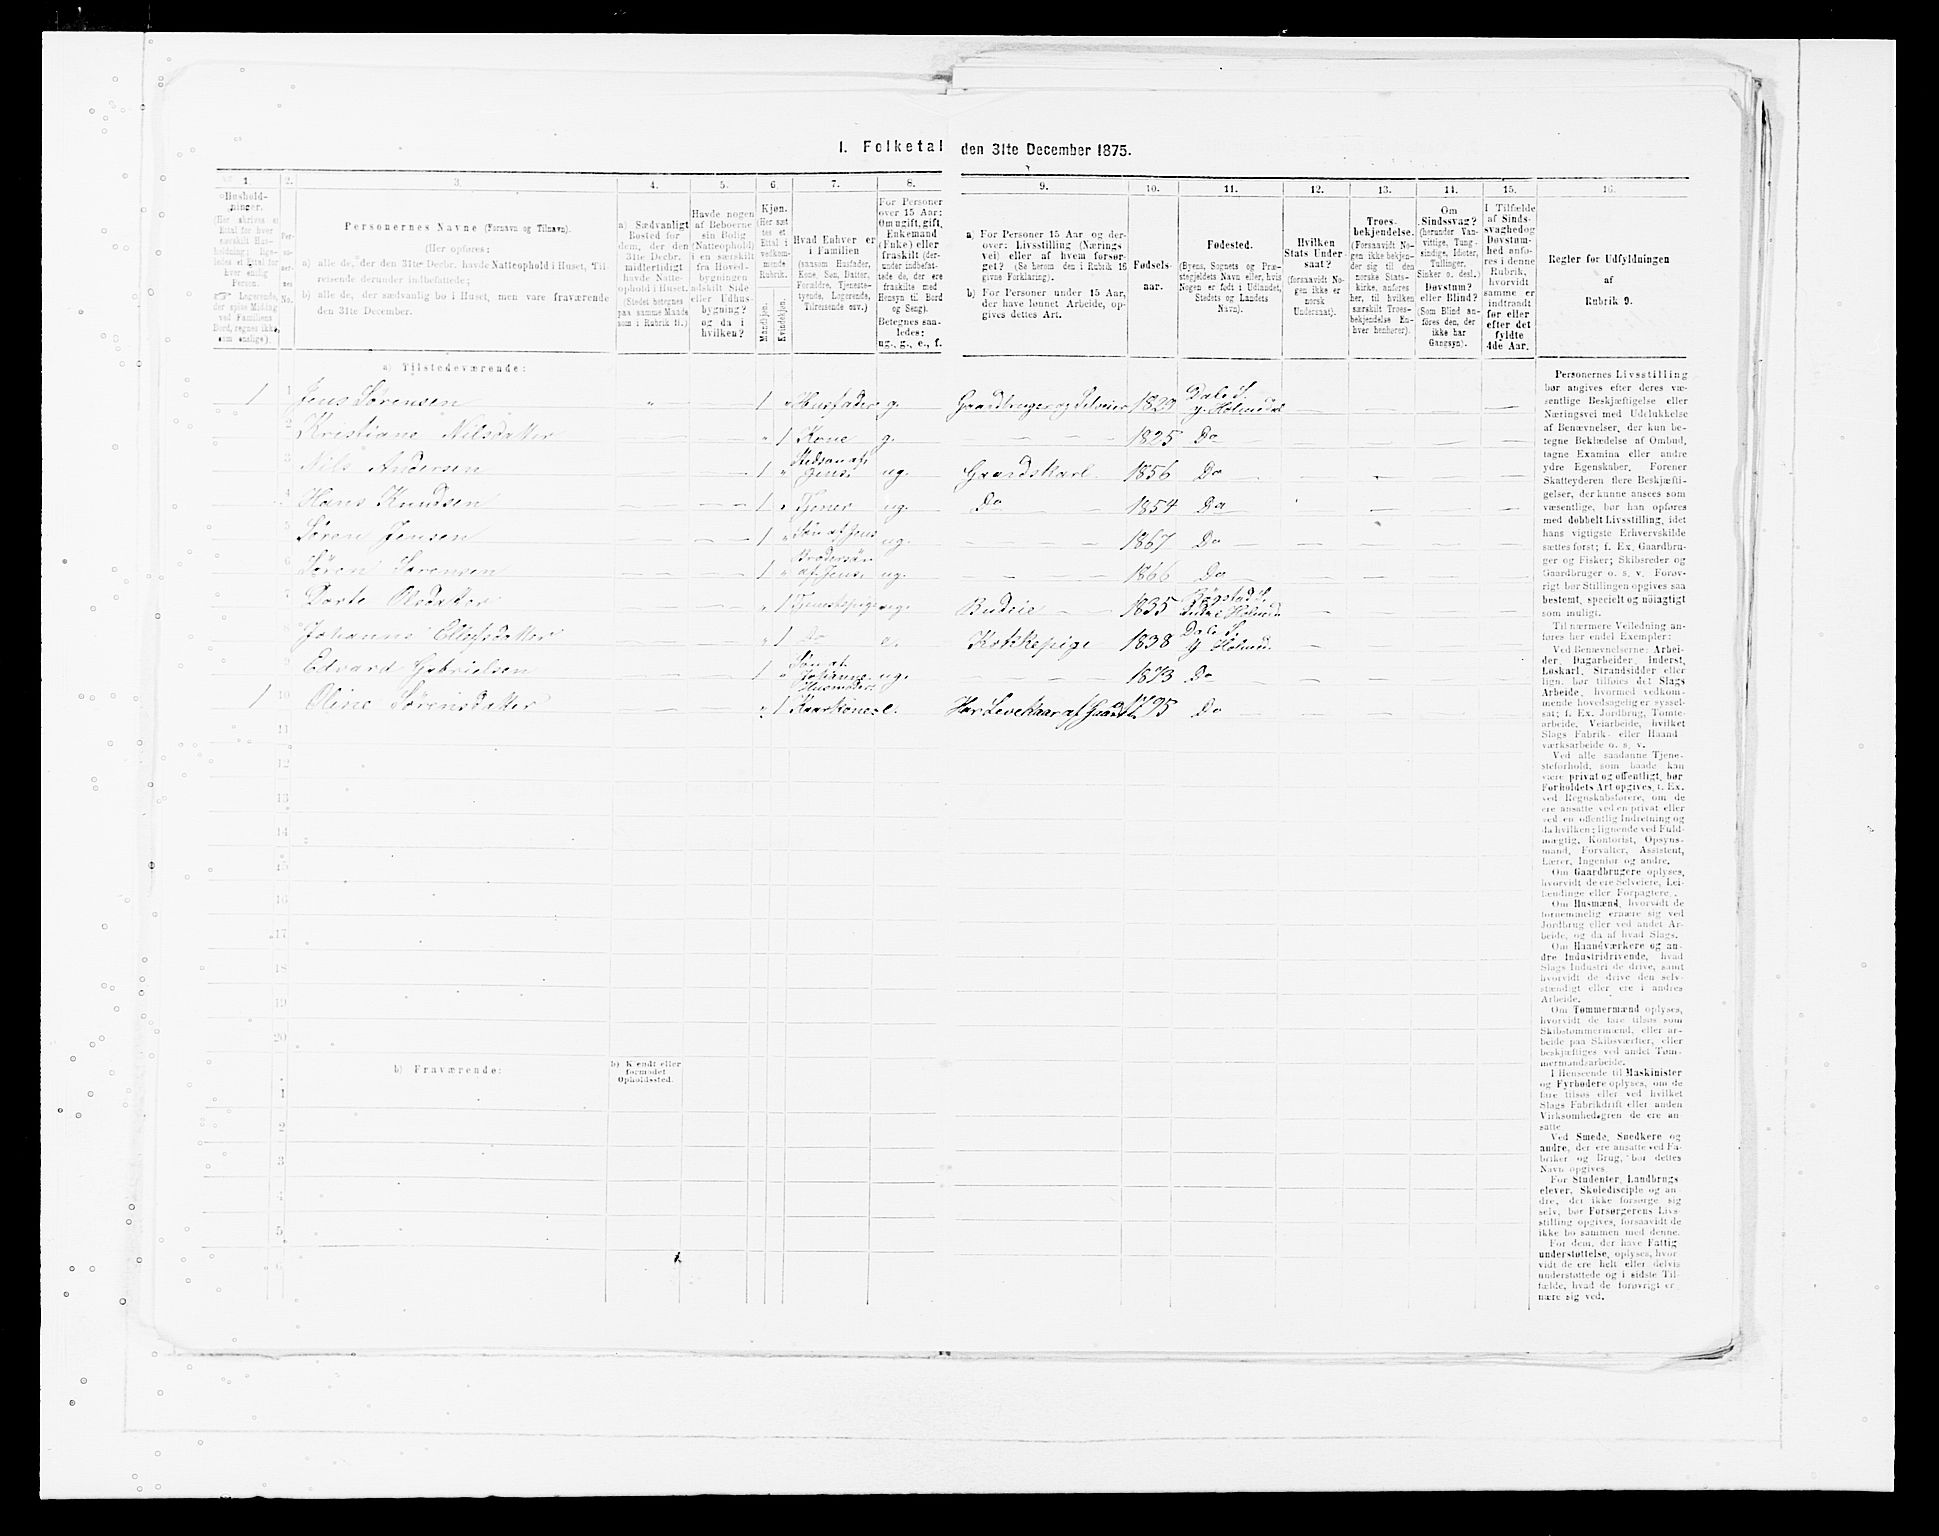 I. Folketal den 31te December 1875.
1. 2. 3. 4. 5. 6. 7. 8. 9. 10. 11. 12. 13. 14. 15. 16.
Personernes Navne (Fornavn og Tilnavn).
(Her opføres:
a) alle de, der den 31te Decbr. havde Natteophold i Huset, Til-
reisende derunder indbefattede;
b) alle de, der sædvanlig bo i Huset, men vare fraværende
den 31te December.
a) Sædvanligt
Bosted for
dem, der den
31te Decbr.
midlertidigt
havde Natte-
ophold i Huset.
(Stedet betegnes
paa samme Maade
som i Rubrik 11.)
Havde nogen
af Beboerne
sin Bolig
(Natteophold)
i en særskilt
fra Hoved-
bygningen
adskilt Side
eller Udhus-
bygning?
og da i
hvilken?
Kjøn.
(Her sæt
tes et
Ettal i
vedkom-
mende
Rubrik.
Mandkjøn.
Kvindekjøn.
Hvad Enhver er
i Familien
(saasom Husfader,
Kone, Søn, Datter,
Forældre, Tjeneste-
tyende, Logerende,
Tilreisende osv.)
For Personer
over 15 Aar:
Om ugift, gift,
Enkemand
(Enke) eller
fraskilt (der-
under indbefat-
tede de, der ere
fraskilte med
Hensyn til Bord
og Seng).
Betegnes saa-
ledes:
ug., g., e., f.
a) For Personer 15 Aar og der-
over: Livsstilling (Nærings
vei) eller af hvem forsør-
get? (Se herom den i Rubrik 16
givne Forklaring).
b) For Personer under 15 Aar,
der have lønnet Arbeide, op-
gives dettes Art.
Fødsels-
aar.
Fødested.
(Byens, Sognets og Præ-
stegjeldets Navn eller, hvis
Nogen er født i Udlandet,
Stedets og Landets
Navn).
Hvilken
Stats Under-
saat?
(forsaavidt No-
gen ikke er
norsk
Undersaat).
Troes-
bekjendelse.
(Forsaavidt No-
gen ikke bekjen-
der sig til den
norske Stats-
kirke, anføres
her, til hvilken
særskilt Troes-
bekjendelse En-
hver henhører).
Om
Sindssvag?
(herunder Van-
vittige, Tung-
sindige, Idioter,
Tullinger,
Sinker o. desl.)
Døvstum?
eller Blind?
(Som Blind an-
føres den, der
ikke har
Gangsyn).
I Tilfælde
af Sinds-
svaghed og
Døvstum-
hed anfø-
res i denne
Rubrik,
hvorvidt
samme er
indtraadt
før eller
efter det
fyldte
4de Aar.
Regler for Udfyldningen
af
Rubrik 9.
a) Tilstedeværende:
1 1 Jens Sørensen " 1 " Husfader g. Gaardbruger og Selveier 1823 Dale S. y. Holmedal
2 Kristiane Nilsdatter " 1 Kone g. 1825 Do
3 Nils Andersen 1 " Stedsøn af Jens ug. Gaardskarl 1856 Do
4 Hans Knudsen 1 " Tjener ug. Do 1854 Do
5 Søren Jensen 1 " Søn af Jens ug. 1867 Do
6 Søren Sørensen 1 " Brodersøn af Jens ug. 1866 Do
7 Dorte Olsdatter " 1 Tjenestepige ug. Budeie 1835
8 Johanne " 1 Do e. Kokkepige 1838 Dale S. y Holmed.
9 Edvard Gabrielsen 1 " Søn af Johanne ug. 1873 Do
1 10 Oline Sørensdatter " 1 Husmoder Kaarkone e. Har Levekaar af Gaarden 1795 Do
11
12
13
14
15
16
17
18
19
20
b) Fraværende:
b) Kjendt eller
formodet
Opholdssted.
1
2
3
4
5
6
Personernes Livsstilling
bør angives efter deres væ-
sentlige Beskjæftigelse eller
Næringsvei med Udelukkelse
af Benævnelser, der kun be-
tegne Beklædelse af Ombud,
tagne Examina eller andre
ydre Egenskaber. Forener
Skatteyderen flere Beskjæfti-
gelser, der kunne ansees som
væsentlige, bør han opføres
med dobbelt Livsstilling, idet
hans vigtigste Erhvervskilde
sættes først; f. Ex. Gaardbru-
ger og Fisker; Skibsreder og
Gaardbruger o. s. v. Forøv-
rigt bør Stillingen opgives saa
bestemt, specielt og nøiagtigt
som muligt.
Til nærmere Veiledning an-
føres her endel Exempler:
Ved Benævnelserne: Arbei-
der, Dagarbeider, Inderst,
Løskarl, Strandsidder eller
lign. bør tilføies det Slags
Arbeide, hvormed vedkom-
mende hovedsagelig er syssel-
sat; f. Ex. Jordbrug, Tømte-
arbeide, Veiarbeide, hvilket
Slags Fabrik- eller Haand-
værksarbeide o. s. v.
Ved alle saadanne Tjene-
steforhold, som baade kan
være privat og offentligt, bør
Forholdets Art opgives, f. Ex.
ved Regnskabsførere, om de
ere ansatte ved en privat eller
ved en offentlig Indretning og
da hvilken; lignende ved Fuld-
mægtig, Kontorist, Opsyns-
mand, Forvalter, Assistent,
Lærer, Ingeniør og andre.
Om Gaardbrugere oplyses,
hvorvidt de ere Selveiere, Lei-
lændinge eller Forpagtere.
Om Husmænd, hvorvidt de
fornemmelig ernære sig ved
Jordbrug eller ved andet Ar-
beide, og da af hvad Slags.
Om Haandværkere og an-
dre Industridrivende, hvad
Slags Industri de drive, samt
hvorvidt de drive den selv-
stændigt eller ere i andres
Arbeide.
Om Tømmermænd oplyses,
hvorvidt de fare tilsøs som
Skibstømmermænd, eller ar-
beide paa Skibsværfter, eller
beskjæftiges ved andet Tøm-
mermandsarbeide.
I Henseende til Maskinister
og Fyrbødere oplyses, om de
fare tilsøs eller ved hvilket
Slags Fabrikdrift eller anden
Virksomhedsgren de ere an-
satte.
Ved Smede, Snedkere og
andre, der ere ansatte ved Fa-
briker og Brug, bør dettes
Navn opgives.
For Studenter, Landbrugs-
elever, Skoledisciple og an-
dre, der ikke forsørge sig
selv, bør Forsørgerens Livs-
stilling opgives, forsaavidt de
ikke bo sammen med denne.
For dem, der have Fattig-
understøttelse, oplyses, hvor-
vidt de ere helt eller delvis
understøttede og i sidste Til-
fælde, hvad de forøvrigt er-
nære sig ved.